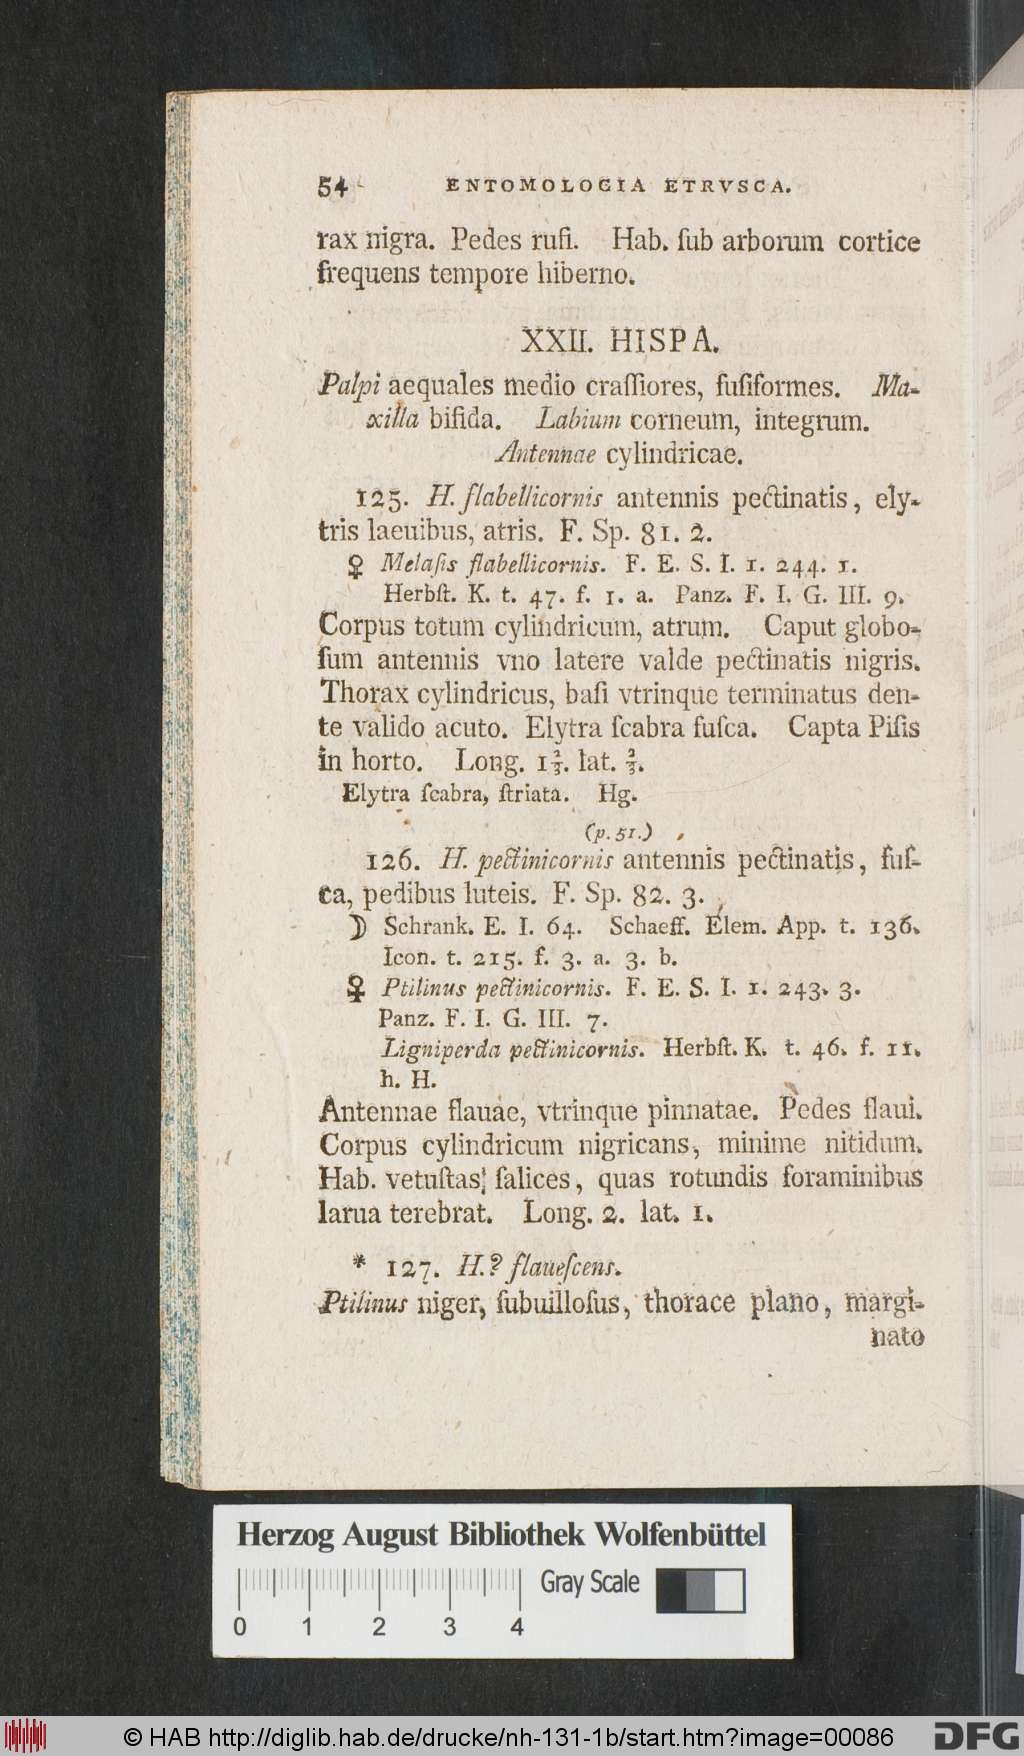 54 ENTOMOLOGIA ETRVSCA.
rax nigra. Pedes rufi. Hab. ſub arborum cortice
frequens tempore hiberno.
XXII. HISPA.
Palpi aequales medio craſſiores, fuſiformes. Ma-
xilla bifida. Labium corneum, integrum.
Antennae cylindricae.
125. H. flabellicornis antennis pectinatis, ely-
tris laeuibus, atris. F. Sp. 81. 2.
♀ Melaſis flabellicornis. F. E. S. I. 1. 244. 1.
Herbſt. K. t. 47. f. 1. a. Panz. F. I. G. III. 9.
Corpus totum cylindricum, atrum. Caput globo-
ſum antennis vno latere valde pectinatis nigris.
Thorax cylindricus, baſi vtrinque terminatus den-
te valido acuto. Elytra ſcabra fuſca. Capta Piſis
in horto. Long. 1⅔. lat. ⅔.
Elytra ſcabra, ſtriata. Hg.
(p. 51.)
126. H. pectinicornis antennis pectinatis, fuſ-
ca, pedibus luteis. F. Sp. 82. 3.
☽ Schrank. E. I. 64. Schaeff. Elem. App. t. 136.
Icon. t. 215. f. 3. a. 3. b.
♀ Ptilinus pectinicornis. F. E. S. I. 1. 243. 3.
Panz. F. I. G. III. 7.
Ligniperda pectinicornis. Herbſt. K. t. 46. f. 11.
h. H.
Antennae flauae, vtrinque pinnatae. Pedes flaui.
Corpus cylindricum nigricans, minime nitidum.
Hab. vetuſtas ſalices, quas rotundis foraminibus
larua terebrat. Long. 2. lat. 1.
* 127. H.? flaueſcens.
Ptilinus niger, ſubuilloſus, thorace plano, margi-
nato
Herzog August Bibliothek Wolfenbüttel
Gray Scale
0 1 2 3 4
© HAB http://diglib.hab.de/drucke/nh-131-1b/start.htm?image=00086
DFG